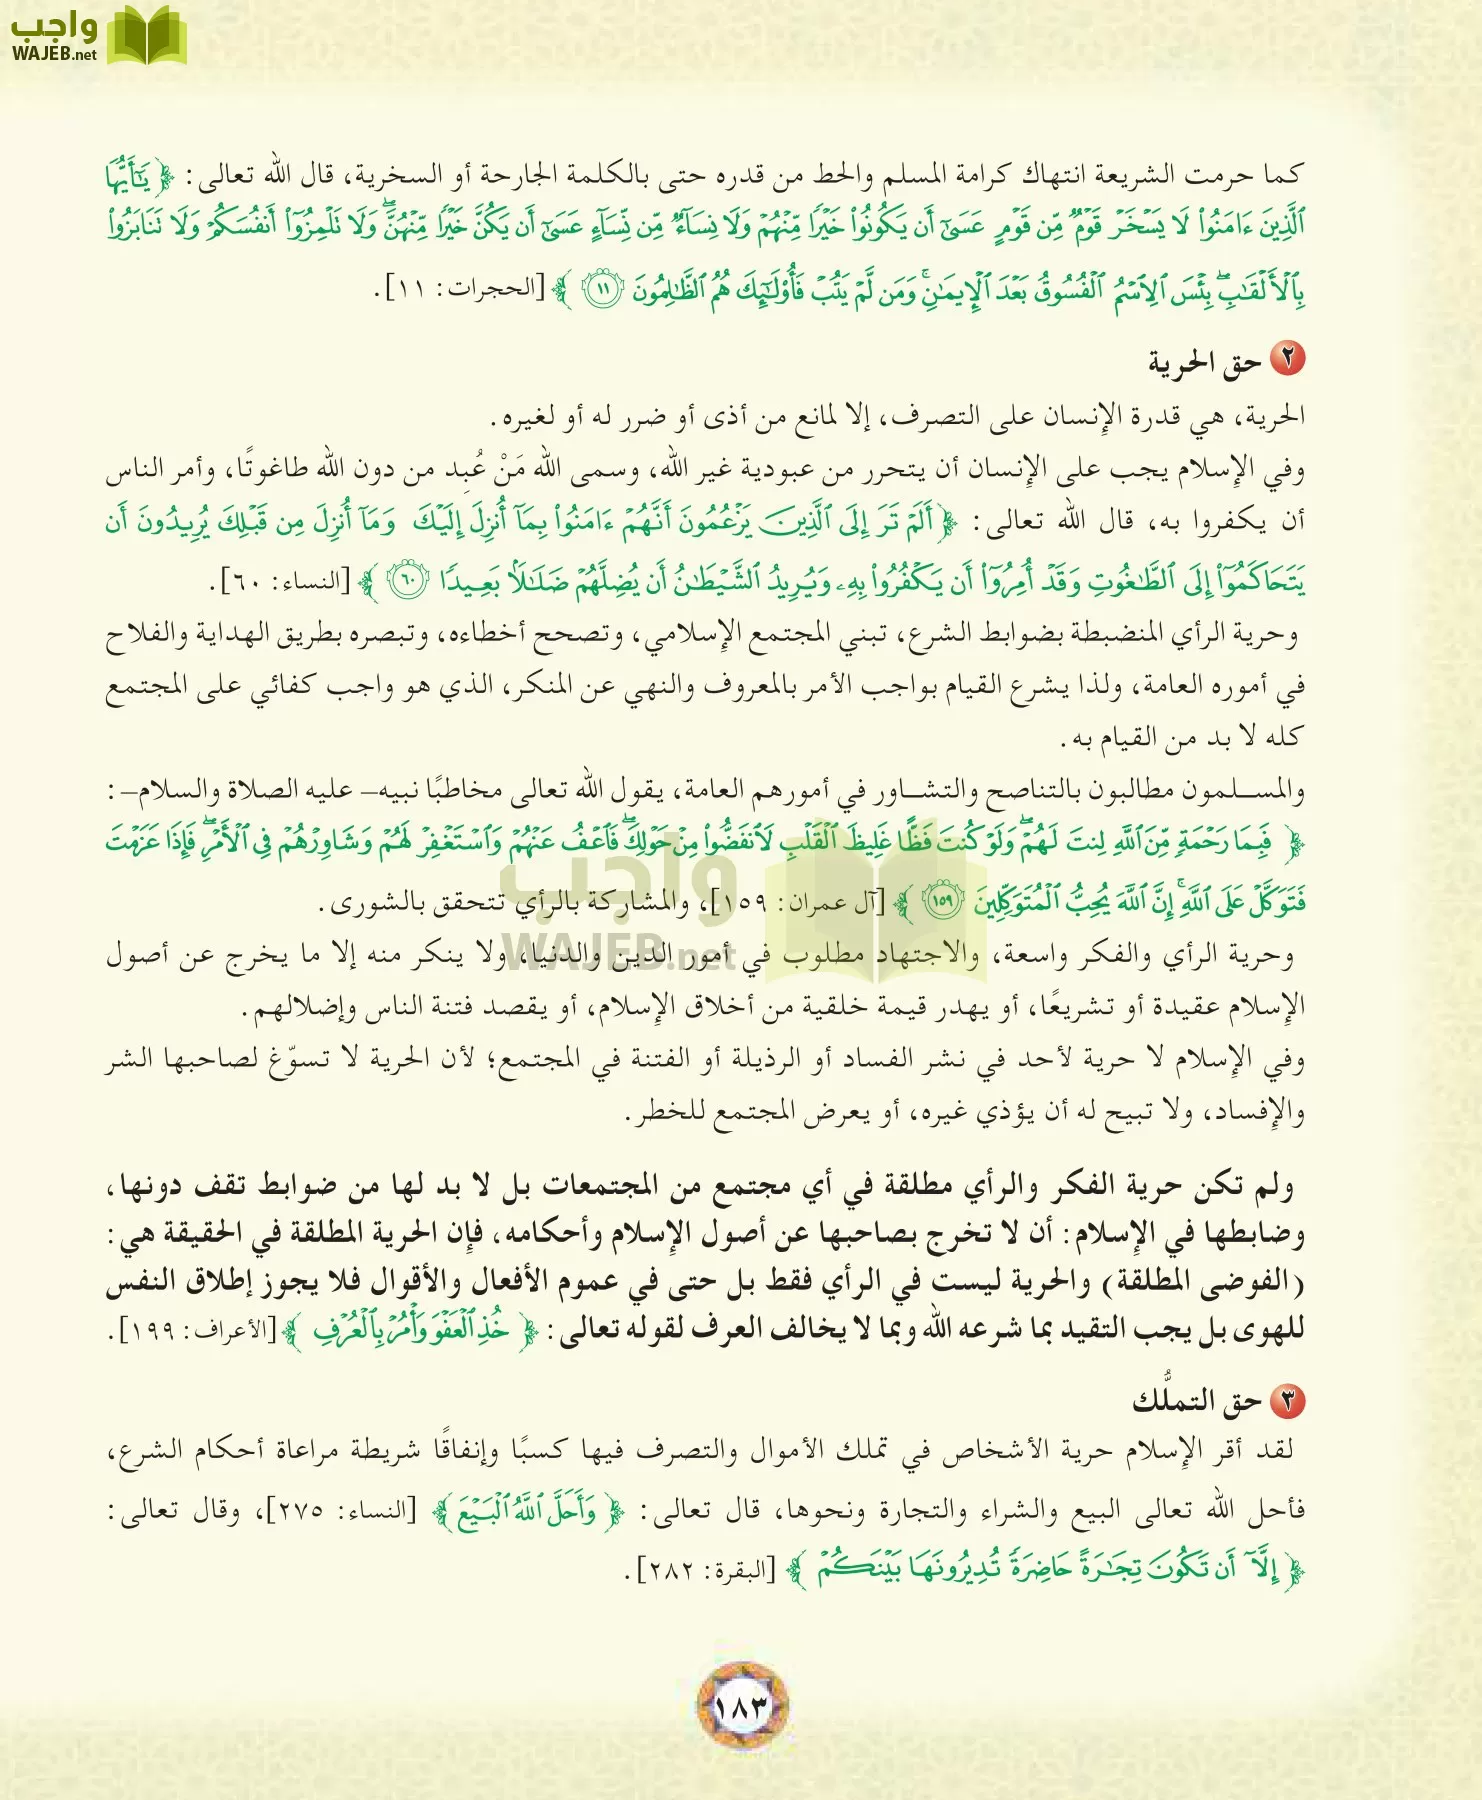 واجب
WAJEB.net
كما حرمت الشريعة انتهاك كرامة المسلم والحط من قدره حتى بالكلمة الجارحة أو السخرية، قال الله تعالى: ﴿ يَٰٓأَيُّهَا
ٱلَّذِينَ ءَامَنُوا۟ لَا يَسْخَرْ قَوْمٌ مِّن قَوْمٍ عَسَىٰٓ أَن يَكُونُوا۟ خَيْرًا مِّنْهُمْ وَلَا نِسَآءٌ مِّن نِّسَآءٍ عَسَىٰٓ أَن يَكُنَّ خَيْرًا مِّنْهُنَّ ۖ وَلَا تَلْمِزُوٓا۟ أَنفُسَكُمْ وَلَا تَنَابَزُوا۟
بِٱلْأَلْقَٰبِ ۖ بِئْسَ ٱلِٱسْمُ ٱلْفُسُوقُ بَعْدَ ٱلْإِيمَٰنِ ۚ وَمَن لَّمْ يَتُبْ فَأُو۟لَٰٓئِكَ هُمُ ٱلظَّٰلِمُونَ ١١ ﴾ [الحجرات: ١١].
٢ حق الحرية
الحرية، هي قدرة الإنسان على التصرف، إلا لمانع من أذى أو ضرر له أو لغيره.
وفي الإسلام يجب على الإنسان أن يتحرر من عبودية غير الله، وسمى الله مَنْ عُبِد من دون الله طاغوتًا، وأمر الناس
أن يكفروا به، قال الله تعالى: ﴿ أَلَمْ تَرَ إِلَى ٱلَّذِينَ يَزْعُمُونَ أَنَّهُمْ ءَامَنُوا۟ بِمَآ أُنزِلَ إِلَيْكَ وَمَآ أُنزِلَ مِن قَبْلِكَ يُرِيدُونَ أَن
يَتَحَاكَمُوٓا۟ إِلَى ٱلطَّٰغُوتِ وَقَدْ أُمِرُوٓا۟ أَن يَكْفُرُوا۟ بِهِۦ وَيُرِيدُ ٱلشَّيْطَٰنُ أَن يُضِلَّهُمْ ضَلَٰلًۢا بَعِيدًا ٦٠ ﴾ [النساء: ٦٠].
وحرية الرأي المنضبطة بضوابط الشرع، تبني المجتمع الإسلامي، وتصحح أخطاءه، وتبصره بطريق الهداية والفلاح
في أموره العامة، ولذا يشرع القيام بواجب الأمر بالمعروف والنهي عن المنكر، الذي هو واجب كفائي على المجتمع
كله لا بد من القيام به.
والمسلمون مطالبون بالتناصح والتشاور في أمورهم العامة، يقول الله تعالى مخاطبًا نبيه– عليه الصلاة والسلام–:
﴿ فَبِمَا رَحْمَةٍ مِّنَ ٱللَّهِ لِنتَ لَهُمْ ۖ وَلَوْ كُنتَ فَظًّا غَلِيظَ ٱلْقَلْبِ لَٱنفَضُّوا۟ مِنْ حَوْلِكَ ۖ فَٱعْفُ عَنْهُمْ وَٱسْتَغْفِرْ لَهُمْ وَشَاوِرْهُمْ فِى ٱلْأَمْرِ ۖ فَإِذَا عَزَمْتَ
فَتَوَكَّلْ عَلَى ٱللَّهِ ۚ إِنَّ ٱللَّهَ يُحِبُّ ٱلْمُتَوَكِّلِينَ ١٥٩ ﴾ [آل عمران: ١٥٩]، والمشاركة بالرأي تتحقق بالشورى.
واجب
WAJEB.net
وحرية الرأي والفكر واسعة، والاجتهاد مطلوب في أمور الدين والدنيا، ولا ينكر منه إلا ما يخرج عن أصول
الإسلام عقيدة أو تشريعًا، أو يهدر قيمة خلقية من أخلاق الإسلام، أو يقصد فتنة الناس وإضلالهم.
وفي الإسلام لا حرية لأحد في نشر الفساد أو الرذيلة أو الفتنة في المجتمع؛ لأن الحرية لا تسوّغ لصاحبها الشر
والإفساد، ولا تبيح له أن يؤذي غيره، أو يعرض المجتمع للخطر.
ولم تكن حرية الفكر والرأي مطلقة في أي مجتمع من المجتمعات بل لا بد لها من ضوابط تقف دونها،
وضابطها في الإسلام: أن لا تخرج بصاحبها عن أصول الإسلام وأحكامه، فإن الحرية المطلقة في الحقيقة هي:
(الفوضى المطلقة) والحرية ليست في الرأي فقط بل حتى في عموم الأفعال والأقوال فلا يجوز إطلاق النفس
للهوى بل يجب التقيد بما شرعه الله وبما لا يخالف العرف لقوله تعالى: ﴿ خُذِ ٱلْعَفْوَ وَأْمُرْ بِٱلْعُرْفِ ﴾ [الأعراف: ١٩٩].
٣ حق التملُّك
لقد أقر الإسلام حرية الأشخاص في تملك الأموال والتصرف فيها كسبًا وإنفاقًا شريطة مراعاة أحكام الشرع،
فأحل الله تعالى البيع والشراء والتجارة ونحوها، قال تعالى: ﴿ وَأَحَلَّ ٱللَّهُ ٱلْبَيْعَ ﴾ [النساء: ٢٧٥]، وقال تعالى:
﴿ إِلَّآ أَن تَكُونَ تِجَٰرَةً حَاضِرَةً تُدِيرُونَهَا بَيْنَكُمْ ﴾ [البقرة: ٢٨٢].
١٨٣